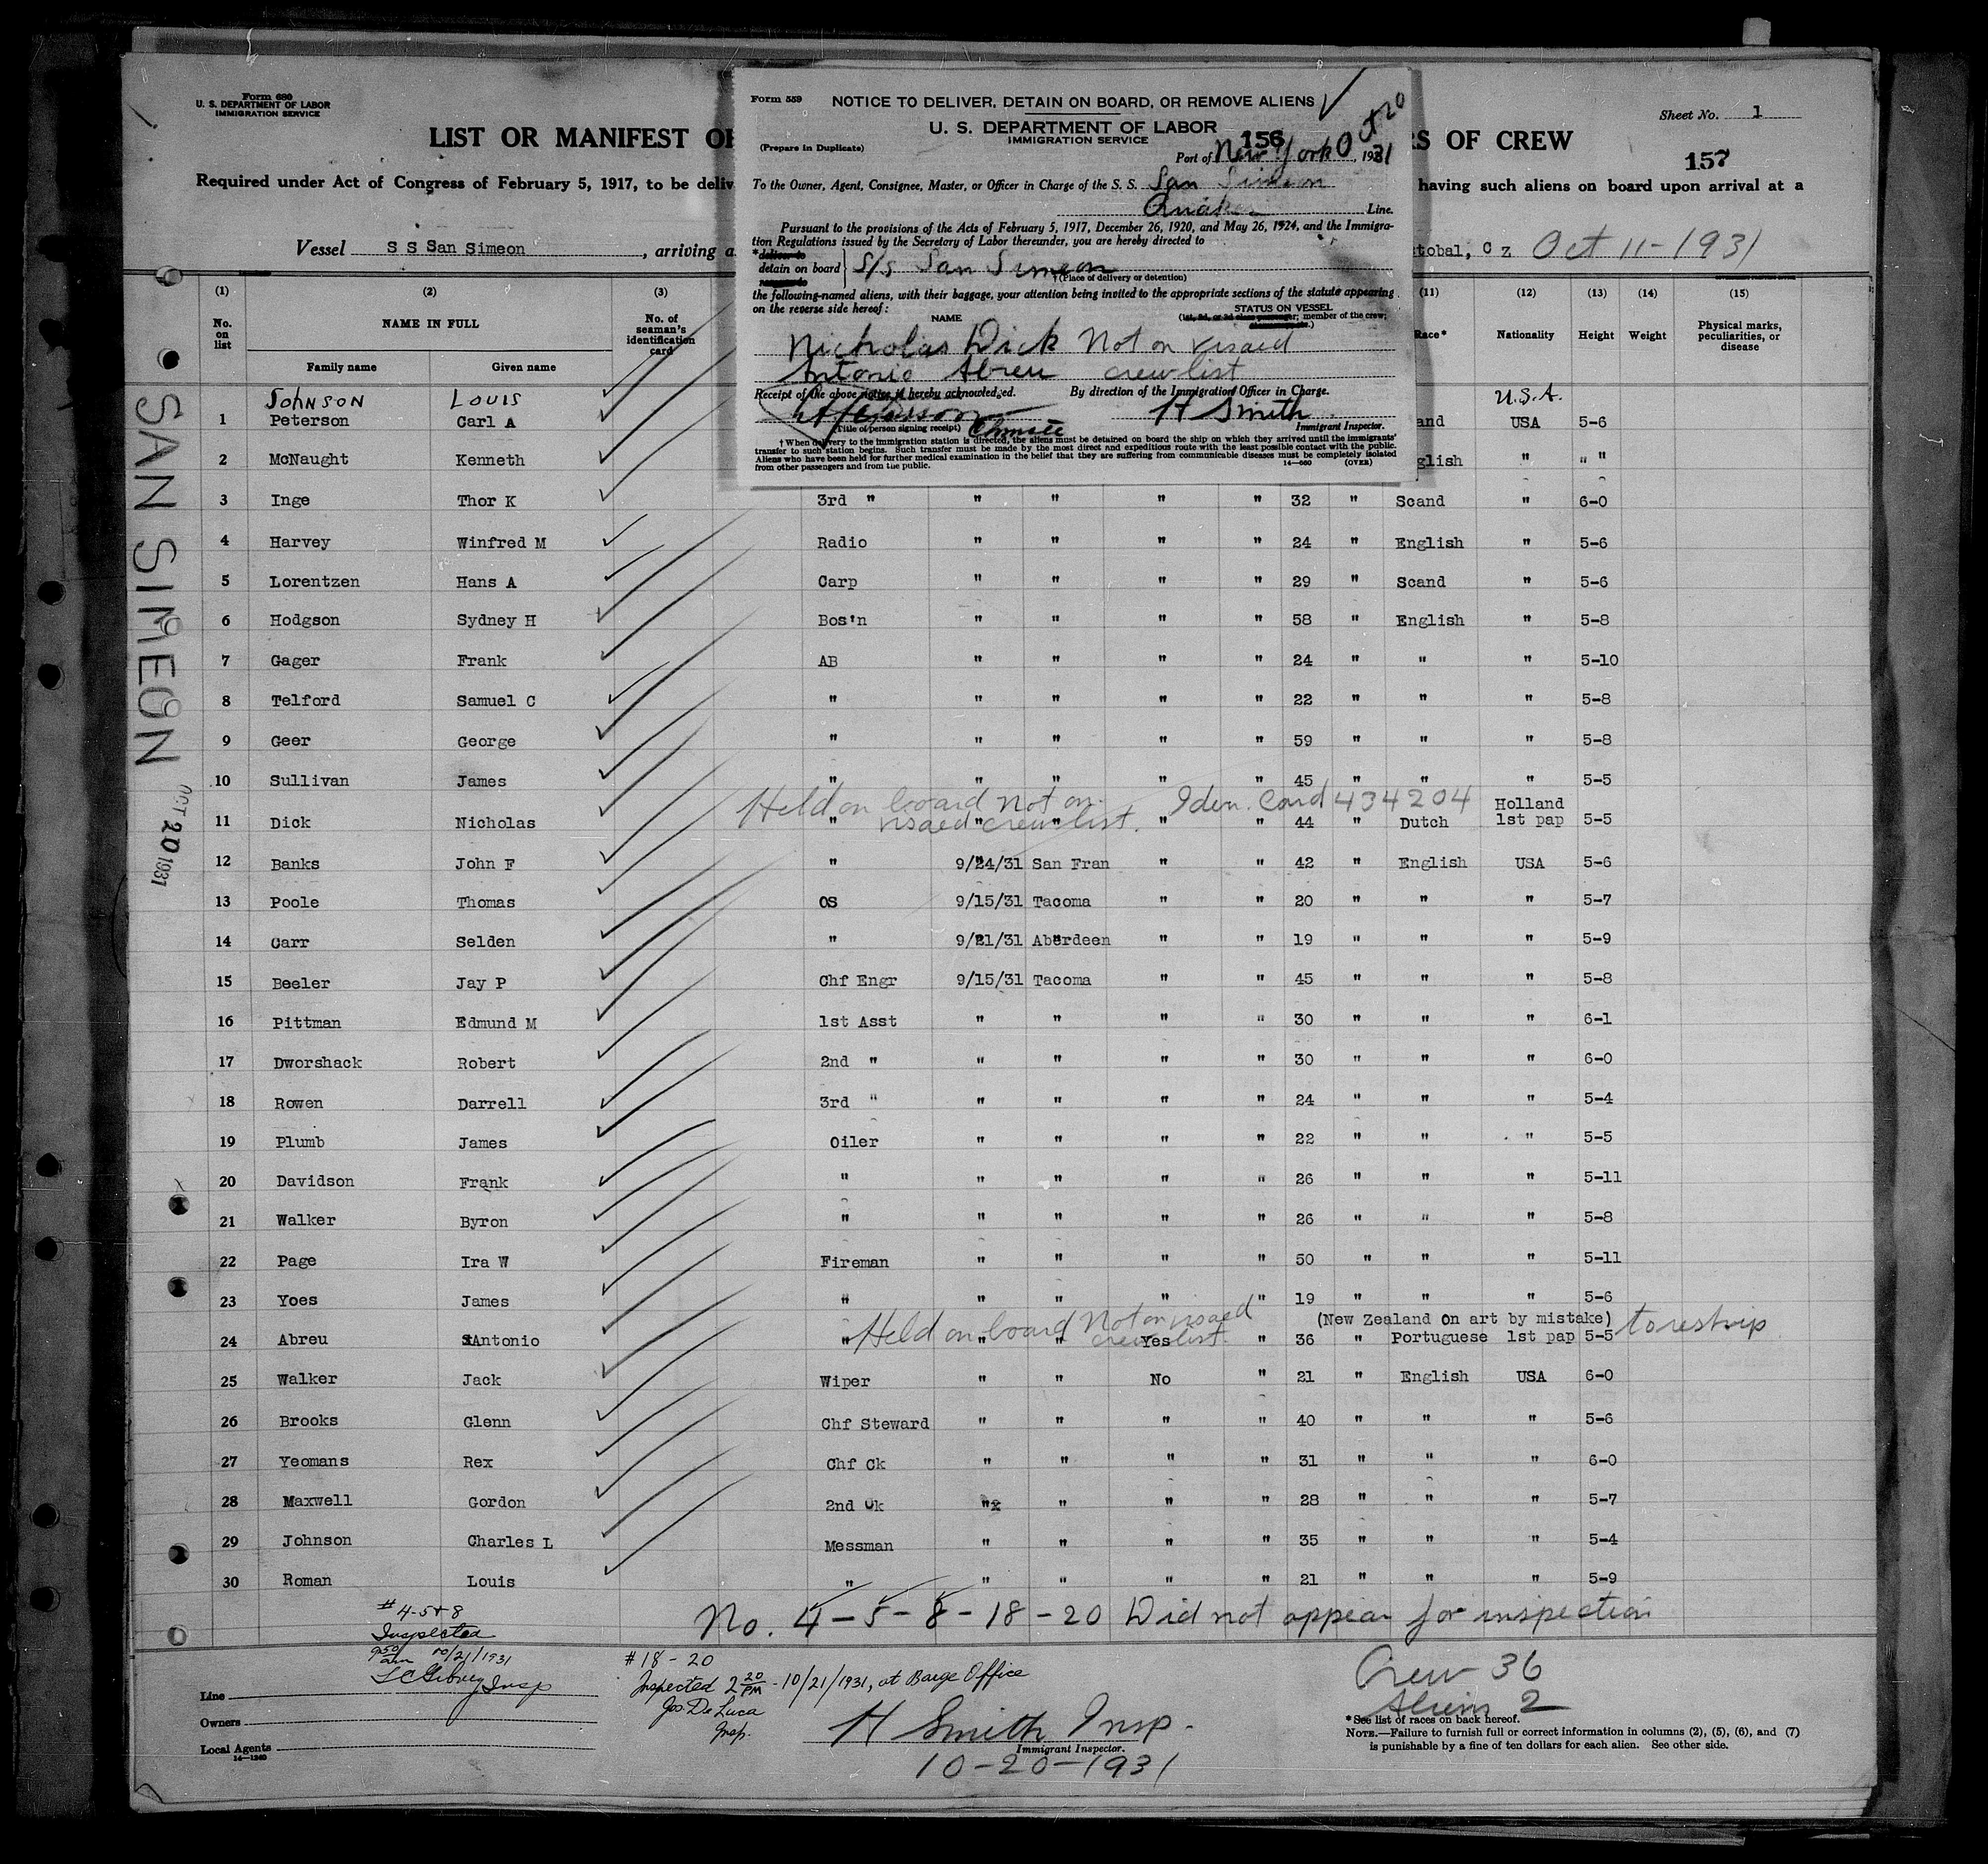 Form 680
U. S. DEPARTMENT OF LABOR
IMMIGRATION SERVICE
LIST OR MANIFEST OF
RS OF CREW
Sheet No. 1
157
Required under Act of Congress of February 5, 1917, to be deliv
having such aliens on board upon arrival at a
Vessel S S San Simeon, arriving a
stobal, C Z Oct 11-1931
Form 559
NOTICE TO DELIVER, DETAIN ON BOARD, OR REMOVE ALIENS
U. S. DEPARTMENT OF LABOR
IMMIGRATION SERVICE
156
(Prepare in Duplicate)
Port of New York Oct 20, 1931
To the Owner, Agent, Consignee, Master, or Officer in Charge of the S. S. San Simeon
Quaker Line.
Pursuant to the provisions of the Acts of February 5, 1917, December 26, 1920, and May 26, 1924, and the Immigra-
tion Regulations issued by the Secretary of Labor thereunder, you are hereby directed to
*deliver to
detain on board S/S San Simeon
†(Place of delivery or detention)
the following-named aliens, with their baggage, your attention being invited to the appropriate sections of the statute appearing
on the reverse side hereof:
NAME
STATUS ON VESSEL
(1st, 2d, or 3d class passenger; member of the crew;
Nicholas Dick Not on visaed
Antonio Abreu crew list
Receipt of the above notice is hereby acknowledged. By direction of the Immigration Officer in Charge.
H Smith
(Title of person signing receipt) Immigrant Inspector.
†When delivery to the immigration station is directed, the aliens must be detained on board the ship on which they arrived until the immigrants'
transfer to such station begins. Such transfer must be made by the most direct and expeditious route with the least possible contact with the public.
Aliens who have been held for further medical examination in the belief that they are suffering from communicable diseases must be completely isolated
from other passengers and from the public.
14—660 (OVER)
(1) (2) (3) (11) (12) (13) (14) (15)
No. on list NAME IN FULL No. of seaman's identification card Race* Nationality Height Weight Physical marks, peculiarities, or disease
Family name Given name
JOHNSON LOUIS U.S.A.
1 Peterson Carl A and USA 5-6
2 McNaught Kenneth glish " " "
3 Inge Thor K 3rd " " " " " 32 " Scand " 6-0
4 Harvey Winfred M Radio " " " " 24 " English " 5-6
5 Lorentzen Hans A Carp " " " " 29 " Scand " 5-6
6 Hodgson Sydney H Bos'n " " " " 58 " English " 5-8
7 Gager Frank AB " " " " 24 " " " 5-10
8 Telford Samuel C " " " " " 22 " " " 5-8
9 Geer George " " " " " 59 " " " 5-8
10 Sullivan James " " " " " 45 " " " 5-5
Held on board not on visaed crew list. Iden. Card 434204 Holland
11 Dick Nicholas " " " " " 44 " Dutch 1st pap 5-5
12 Banks John F " 9/24/31 San Fran " " 42 " English USA 5-6
13 Poole Thomas OS 9/15/31 Tacoma " " 20 " " " 5-7
14 Carr Selden " 9/21/31 Aberdeen " " 19 " " " 5-9
15 Beeler Jay P Chf Engr 9/15/31 Tacoma " " 45 " " " 5-8
16 Pittman Edmund M 1st Asst " " " " 30 " " " 6-1
17 Dworshack Robert 2nd " " " " " 30 " " " 6-0
18 Rowen Darrell 3rd " " " " " 24 " " " 5-4
19 Plumb James Oiler " " " " 22 " " " 5-5
20 Davidson Frank " " " " " 26 " " " 5-11
21 Walker Byron " " " " " 26 " " " 5-8
22 Page Ira W Fireman " " " " 50 " " " 5-11
23 Yoes James " " " " " 19 " " " 5-6
Held on board Not on visaed crew list. (New Zealand On art by mistake)
24 Abreu Antonio " " " Yes " 36 " Portuguese 1st pap 5-5
25 Walker Jack Wiper " " No " 21 " English USA 6-0
26 Brooks Glenn Chf Steward " " " " 40 " " " 5-6
27 Yeomans Rex Chf Ck " " " " 31 " " " 6-0
28 Maxwell Gordon 2nd Ck " " " " 28 " " " 5-7
29 Johnson Charles L Messman " " " " 35 " " " 5-4
30 Roman Louis " " " " " 21 " " " 5-9
No. 4-5-8-18-20 Did not appear for inspection
#4-5&8
Inspected
9 50 am 10/21/1931
Insp
#18-20
Inspected 2 20 PM - 10/21/1931, at Barge Office
Jos. De Luca
Insp.
H Smith Insp.
Immigrant Inspector.
10-20-1931
Crew 36
Aliens 2
Line
Owners
Local Agents
14—1240
*See list of races on back hereof.
NOTE.—Failure to furnish full or correct information in columns (2), (5), (6), and (7)
is punishable by a fine of ten dollars for each alien. See other side.
SAN SIMEON
OCT 20 1931